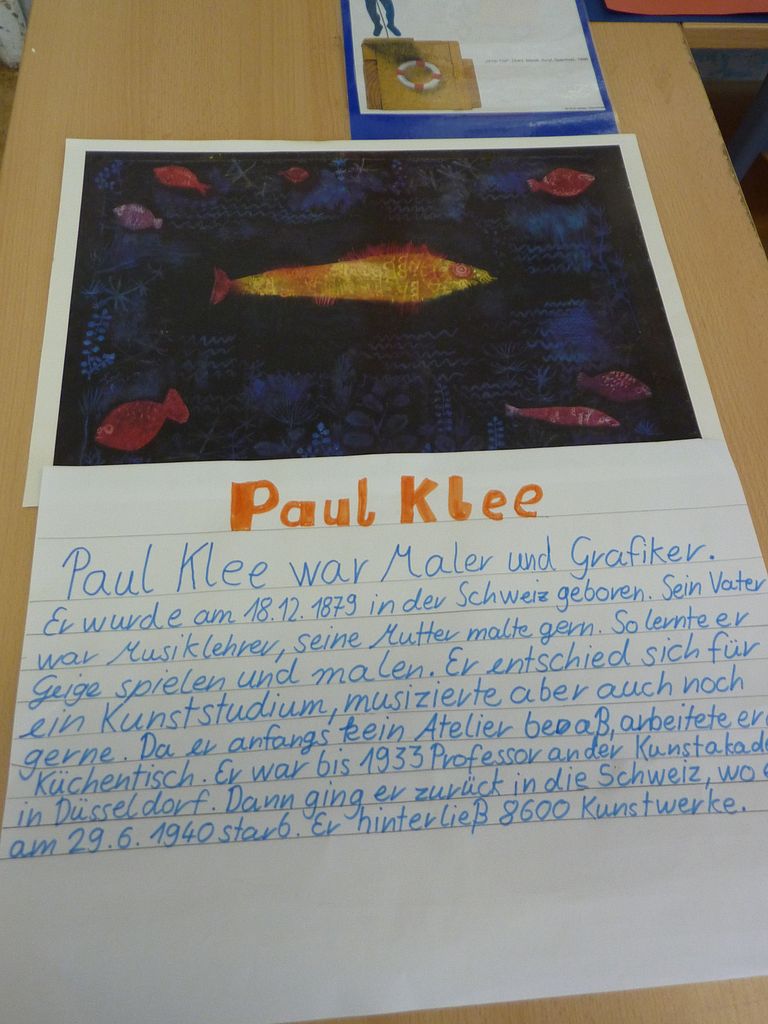 Paul Klee
Paul Klee war Maler und Grafiker.
Er wurde am 18.12.1879 in der Schweiz geboren. Sein Vater
war Musiklehrer, seine Mutter malte gern. So lernte er
Geige spielen und malen. Er entschied sich für
ein Kunststudium, musizierte aber auch noch
gerne. Da er anfangs kein Atelier besaß, arbeitete er
Küchentisch. Er war bis 1933 Professor an der Kunstakade
in Düsseldorf. Dann ging er zurück in die Schweiz, wo
am 29.6.1940 starb. Er hinterließ 8600 Kunstwerke.